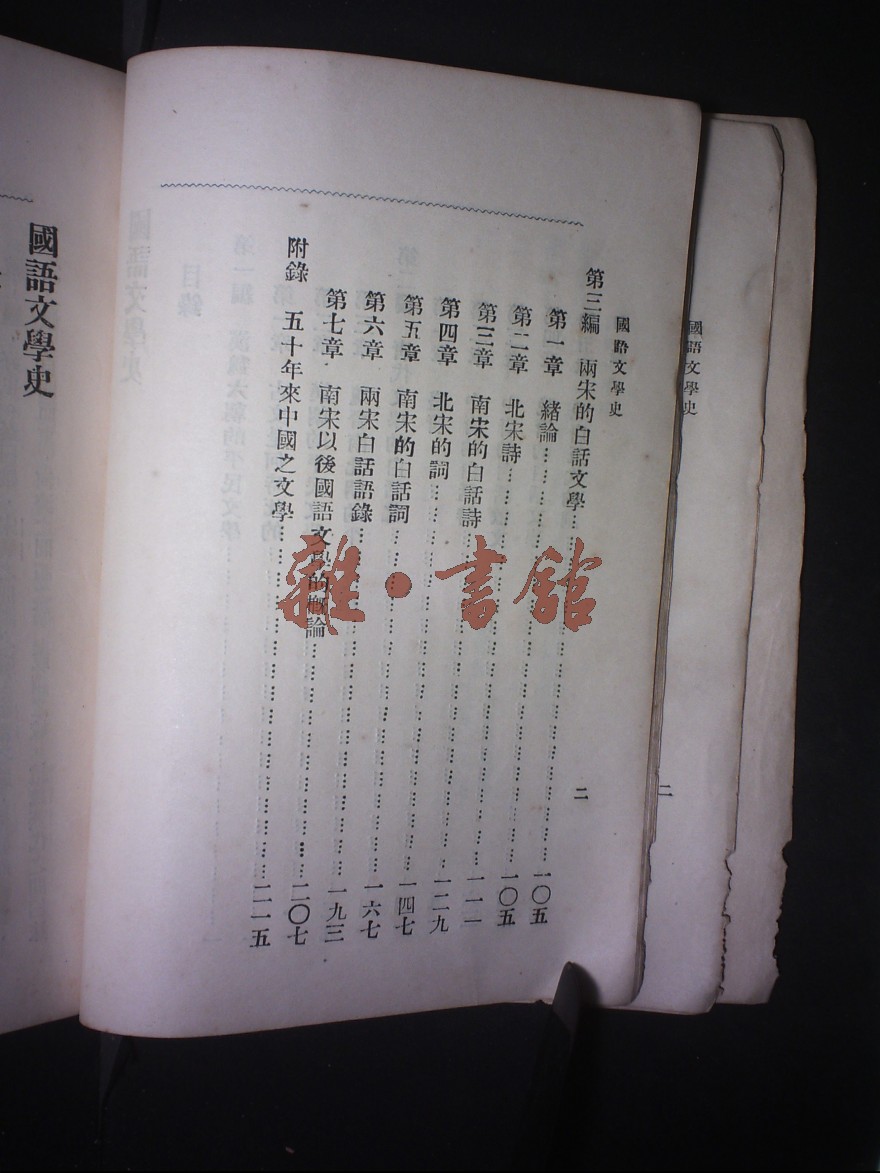 國語文學史
二
國語文學史
第三編 兩宋的白話文學……一〇五
第一章 緒論……一〇五
第二章 北宋詩……一一一
第三章 南宋的白話詩……一二九
第四章 北宋的詞……一四七
第五章 南宋的白話詞……一六七
第六章 兩宋白話語錄……一九三
第七章 南宋以後國語文學的概論……二〇七
附錄 五十年來中國之文學……二一五
二
國語文學史
雜·書館